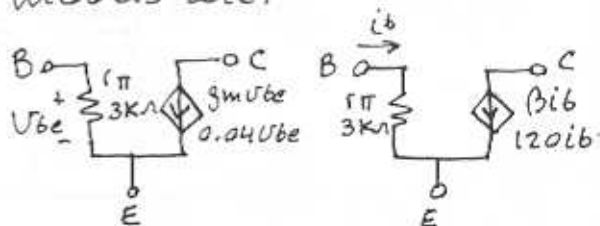 ib
B rπ 3KΩ + Vbe - gmVbe 0.04Vbe C
E
B rπ 3KΩ βib 120ib C
E